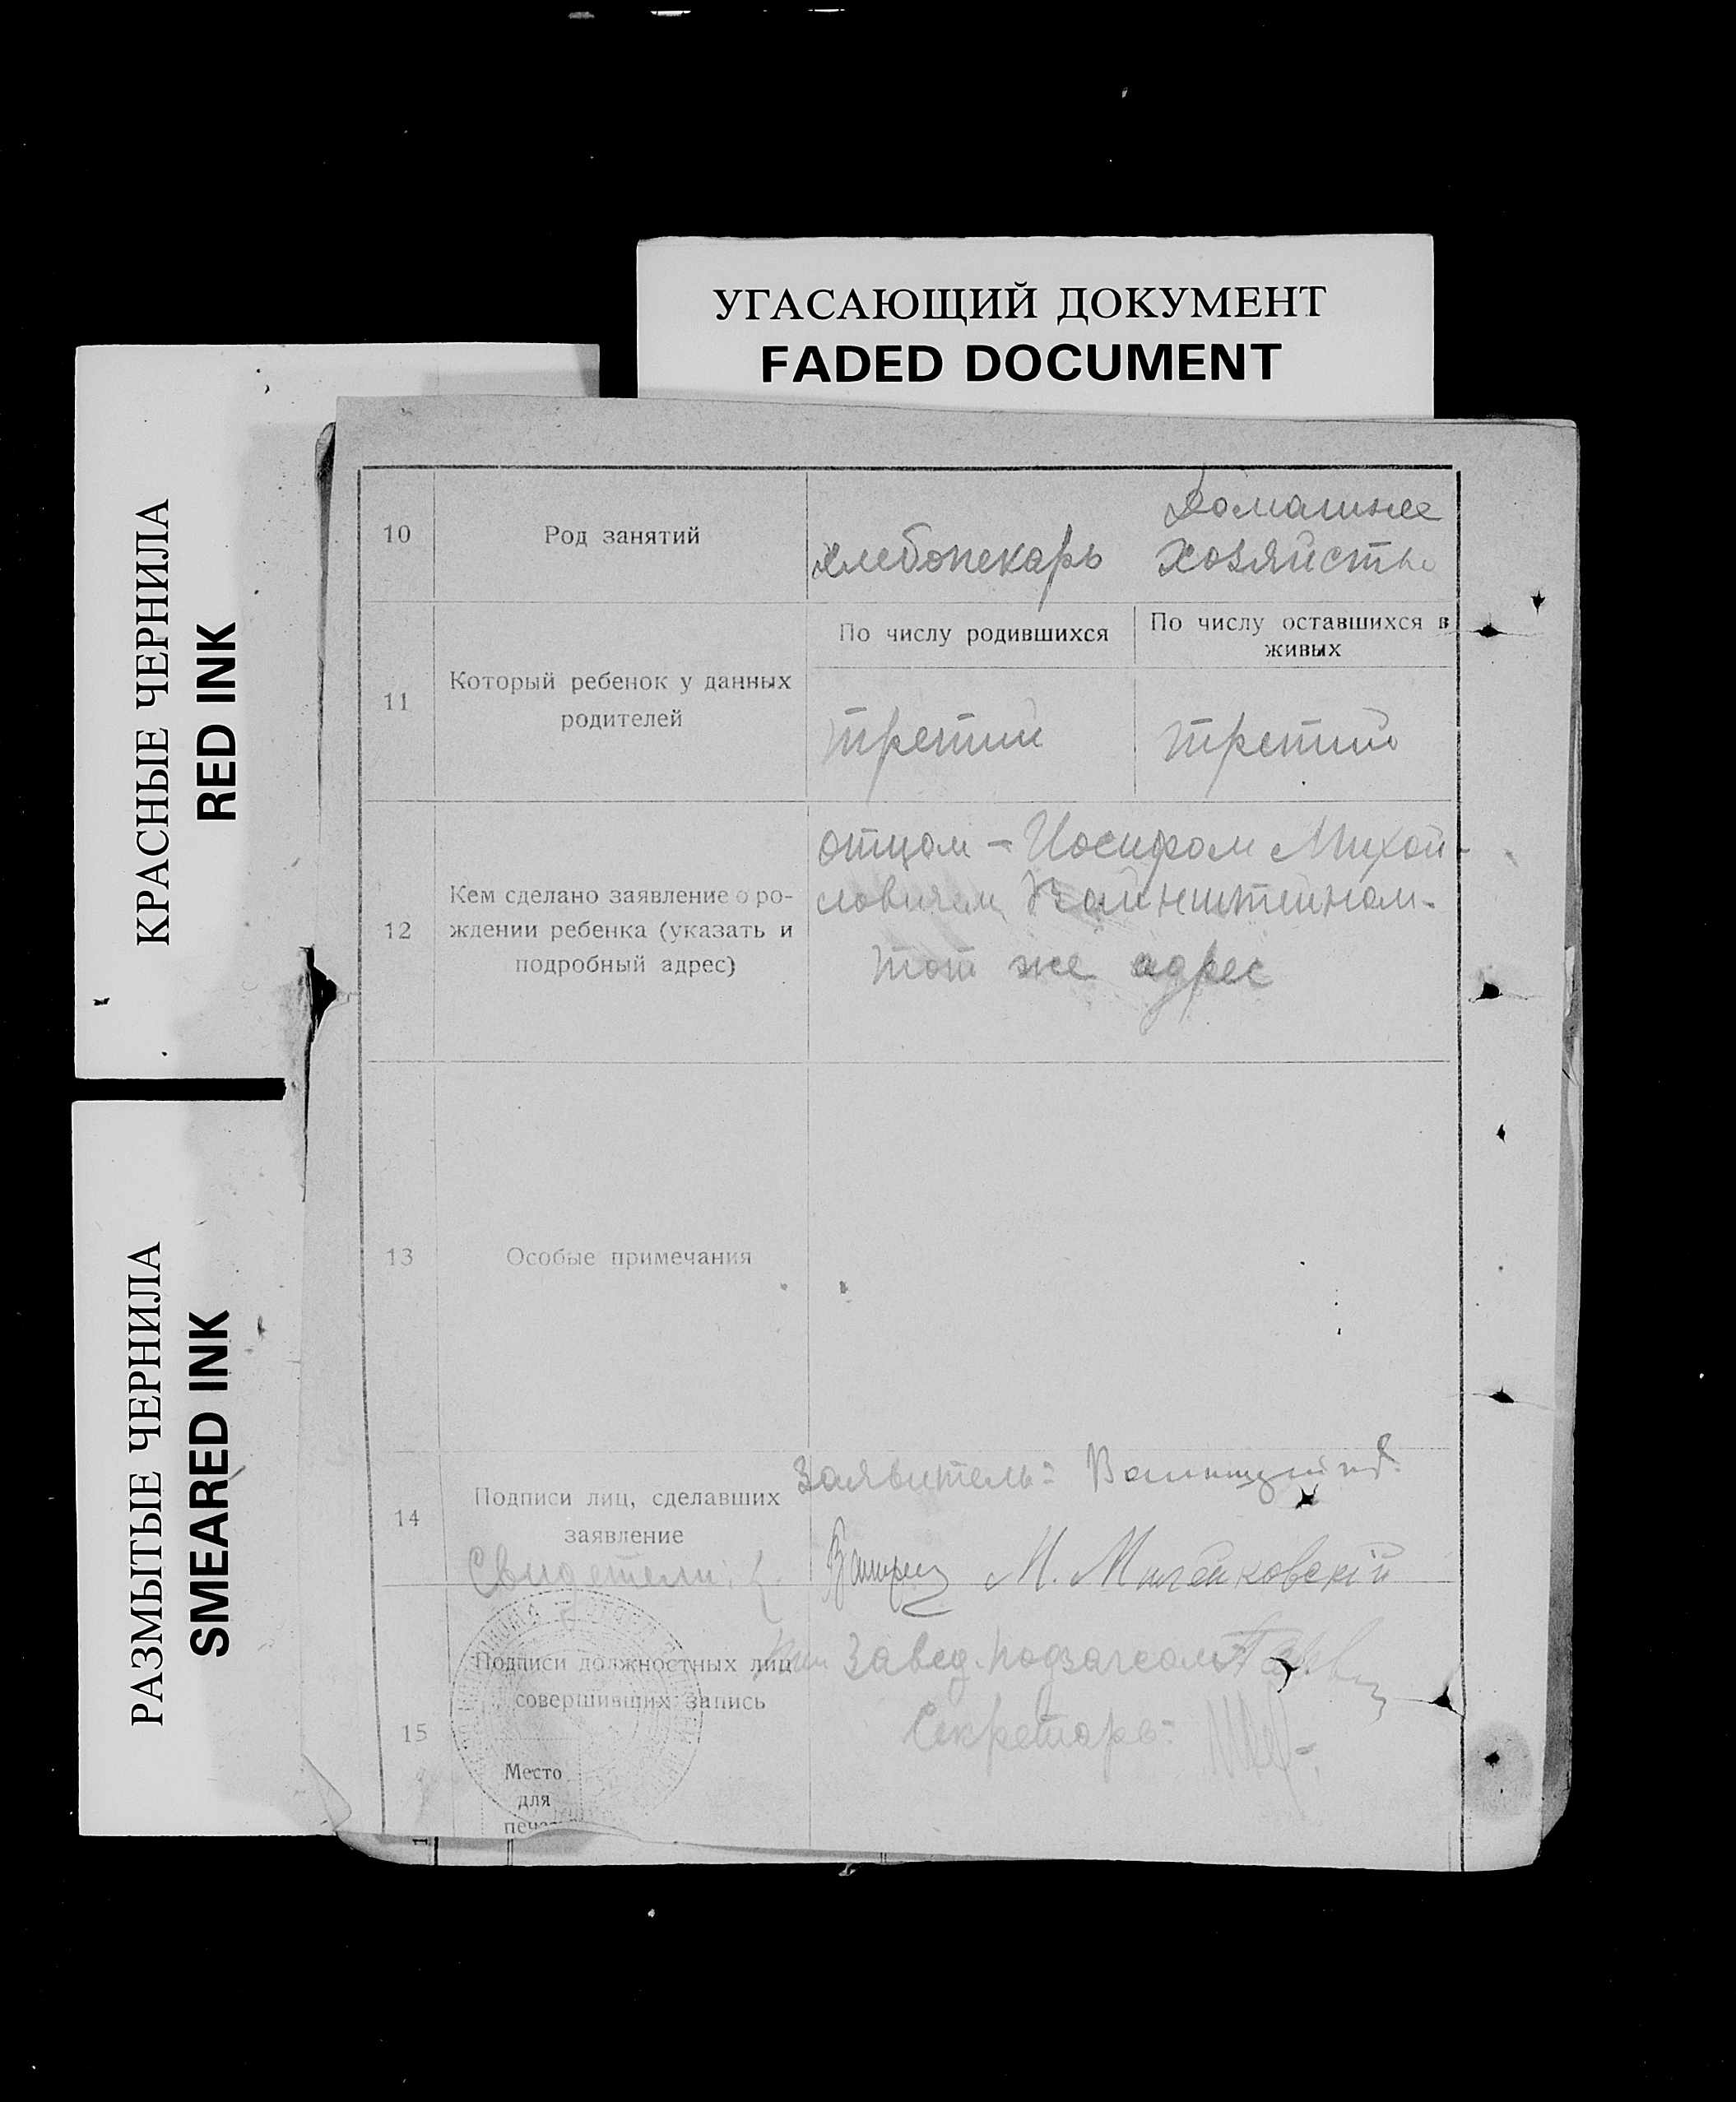 УГАСАЮЩИЙ ДОКУМЕНТ
FADED DOCUMENT
КРАСНЫЕ ЧЕРНИЛА
RED INK
РАЗМЫТЫЕ ЧЕРНИЛА
SMEARED INK
10
Род занятий
хлебопекарь
Домашнее
хозяйство
11
Который ребенок у данных
родителей
По числу родившихся
По числу оставшихся в
живых
третий
третий
12
Кем сделано заявление о ро-
ждении ребенка (указать и
подробный адрес)
отцом - Иосифом Михай-
ловичем Вайнштейном.
тот же адрес
13
Особые примечания
14
Подписи лиц, сделавших
заявление
Заявитель:
Свидетели:
М.
15
Подписи должностных лиц
совершивших запись
Завед. подзагсом
Секретарь:
Место
для